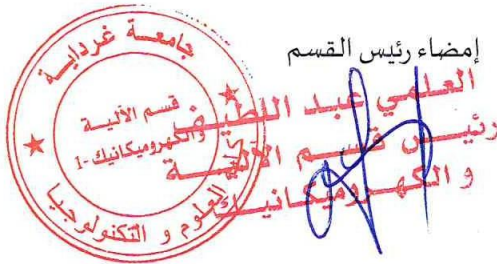 إمضاء رئيس القسم
العلمي عبد اللطيف
رئيس قسم الآلية
و الكهروميكانيك
جامعة غرداية
قسم الآلية
والكهروميكانيك-1
كلية العلوم و التكنولوجيا